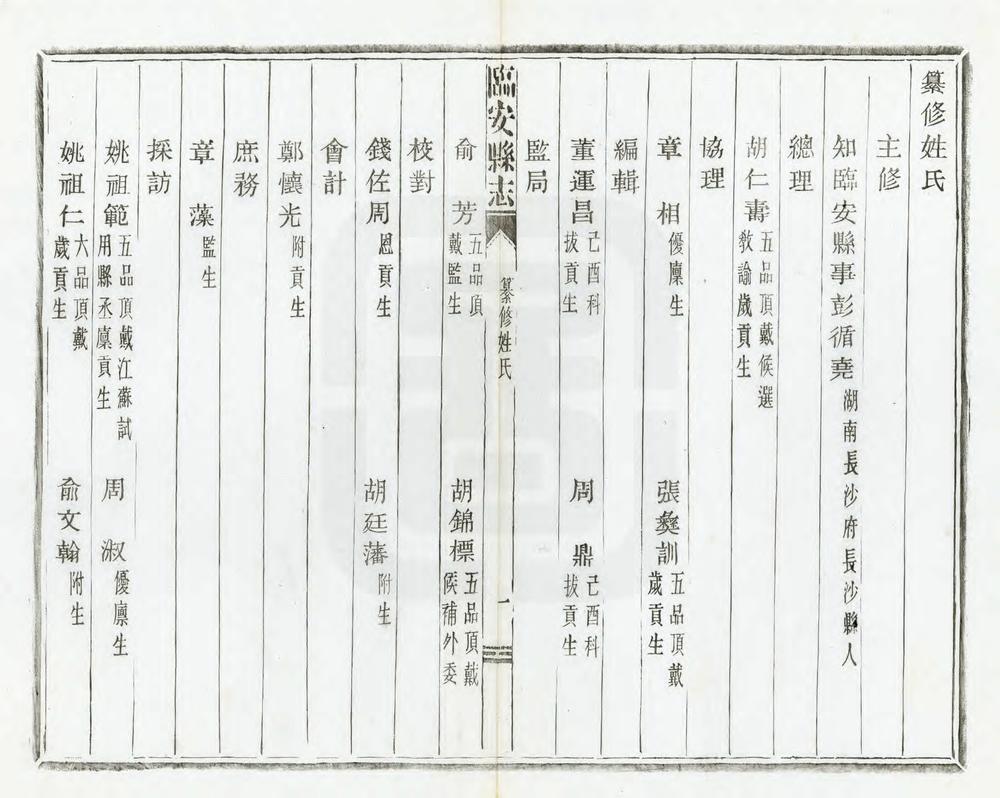 纂修姓氏
主修
知臨安縣事彭循堯 湖南長沙府長沙縣人
總理
胡仁壽 五品頂戴候選
教諭歲貢生
協理
章相 優廩生
張彝訓 五品頂戴
歲貢生
編輯
董運昌 己酉科
拔貢生
周鼎 己酉科
拔貢生
監局
臨安縣志
纂修姓氏
一
俞芳 五品頂
戴監生
胡錦標 五品頂戴
候補外委
校對
錢佐周 恩貢生
胡廷藩 附生
會計
鄭懷光 附貢生
庶務
章藻 監生
採訪
姚祖範 五品頂戴江蘇試
用縣丞廩貢生
周淑 優廩生
姚祖仁 六品頂戴
歲貢生
俞文翰 附生